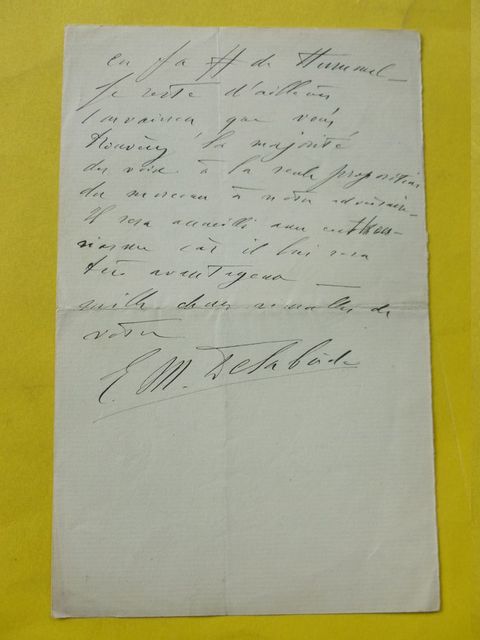 en fa # de Hummel_
Je reste d'ailleurs
convaincu que vous
trouverez la majorité
des voix à la seule proposition
du morceau à notre adversaire_
Il sera accueilli avec enthou-
siasme car il lui sera
très avantageux _
mille choses aimables de
votre
E. M. Delaborde